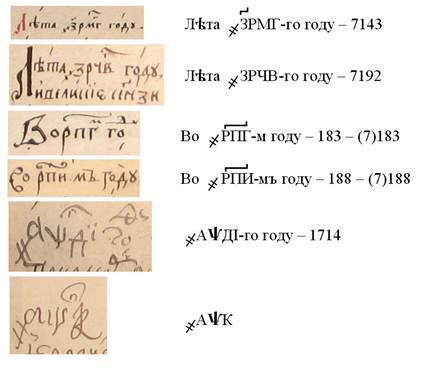 Лѣта ҂ЗРМГ го году.
Лѣта ҂ЗРМГ-го году – 7143
Лѣта ҂ЗРЧВ году
Лѣта ҂ЗРЧВ-го году – 7192
Во РПГ го
Во ҂РПГ-м году – 183 – (7)183
Во РПИ мъ году
Во ҂РПИ-мъ году – 188 – (7)188
҂АѰДІ го
҂АѰДІ-го году – 1714
҂АѰК
҂АѰК